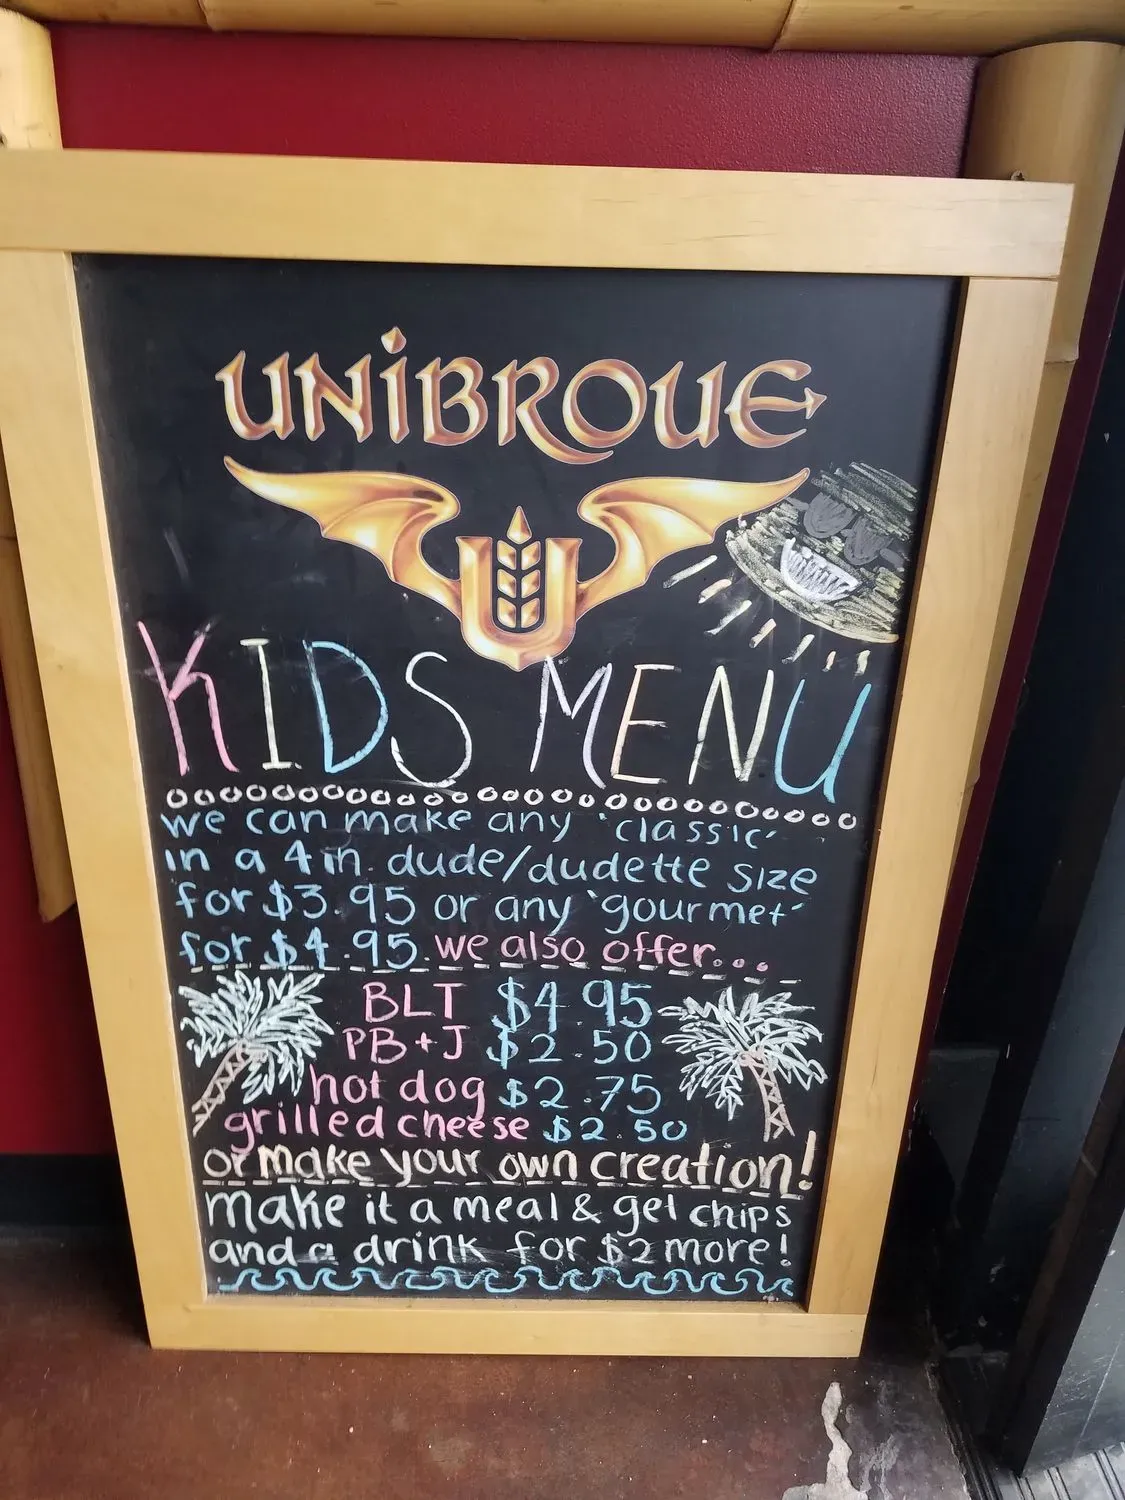 UNIBROUE
U
KIDS MENU
we can make any 'classic'
in a 4in. dude/dudette size
for $3.95 or any 'gourmet'
for $4.95. we also offer...
BLT $4.95
PB+J $2.50
hot dog $2.75
grilled cheese $2.50
or make your own creation!
make it a meal & get chips
and a drink for $2 more!